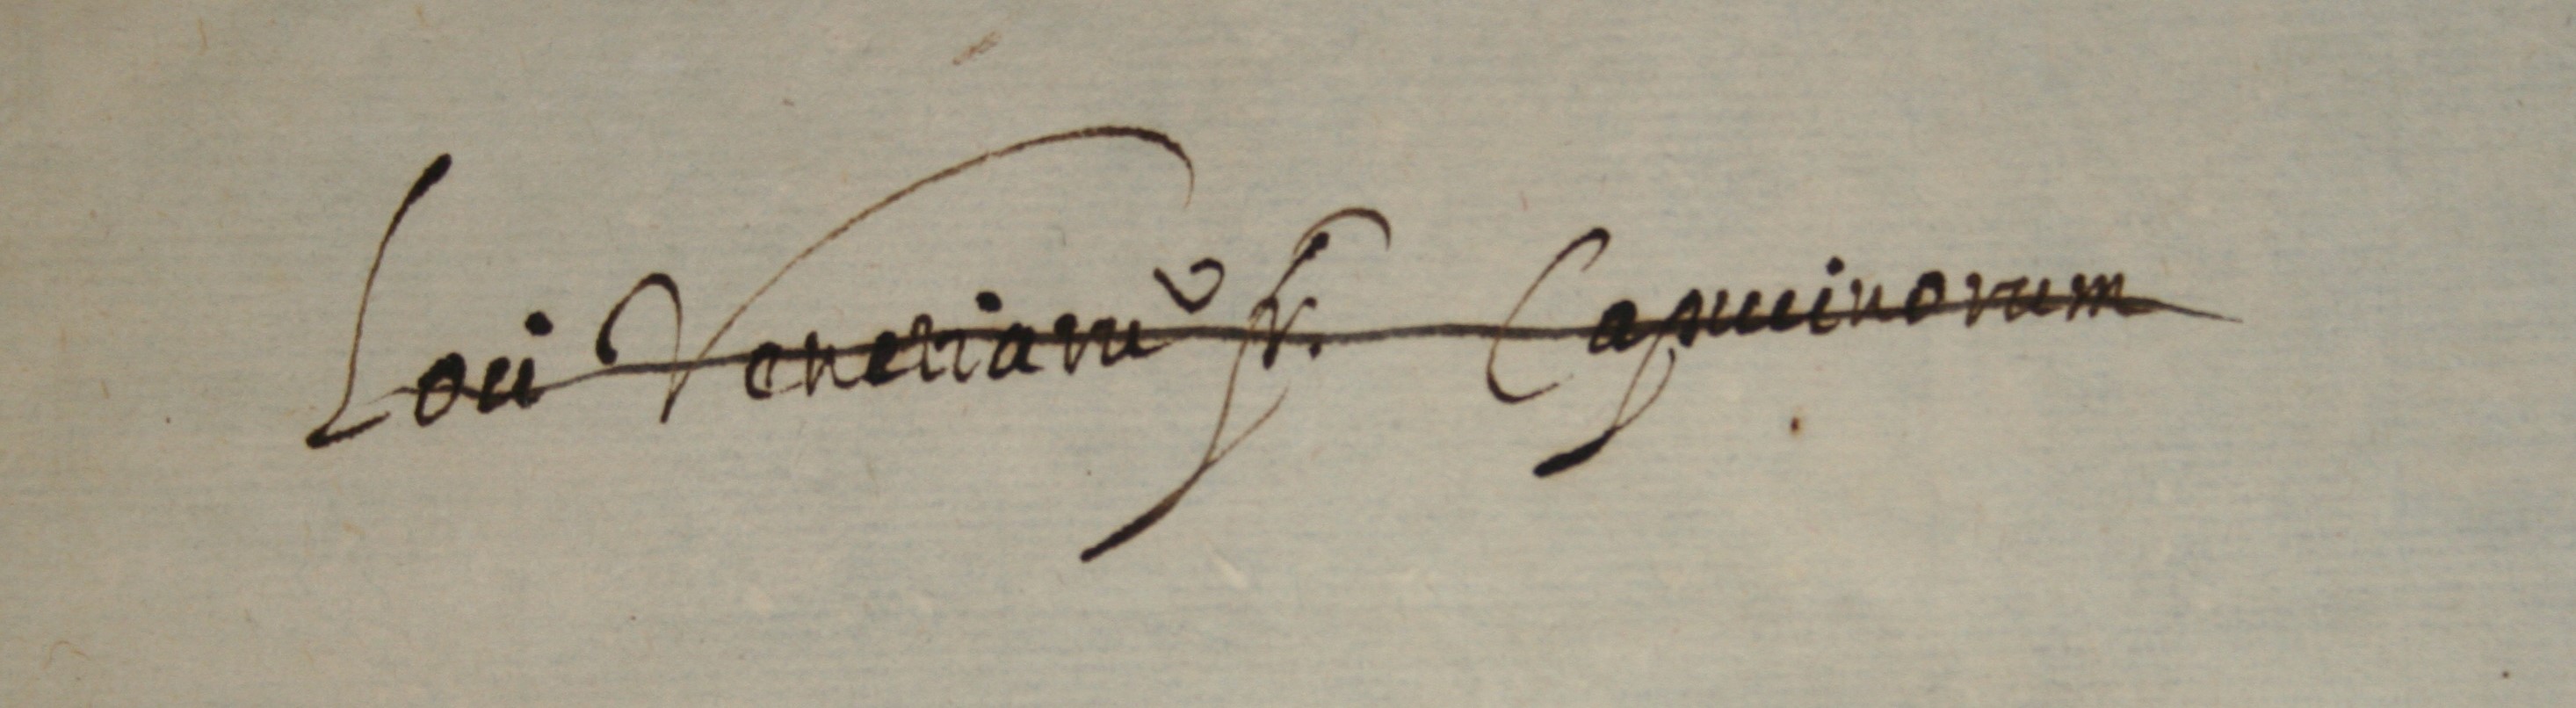 Loci Venetiarũ fr. Capucinorum